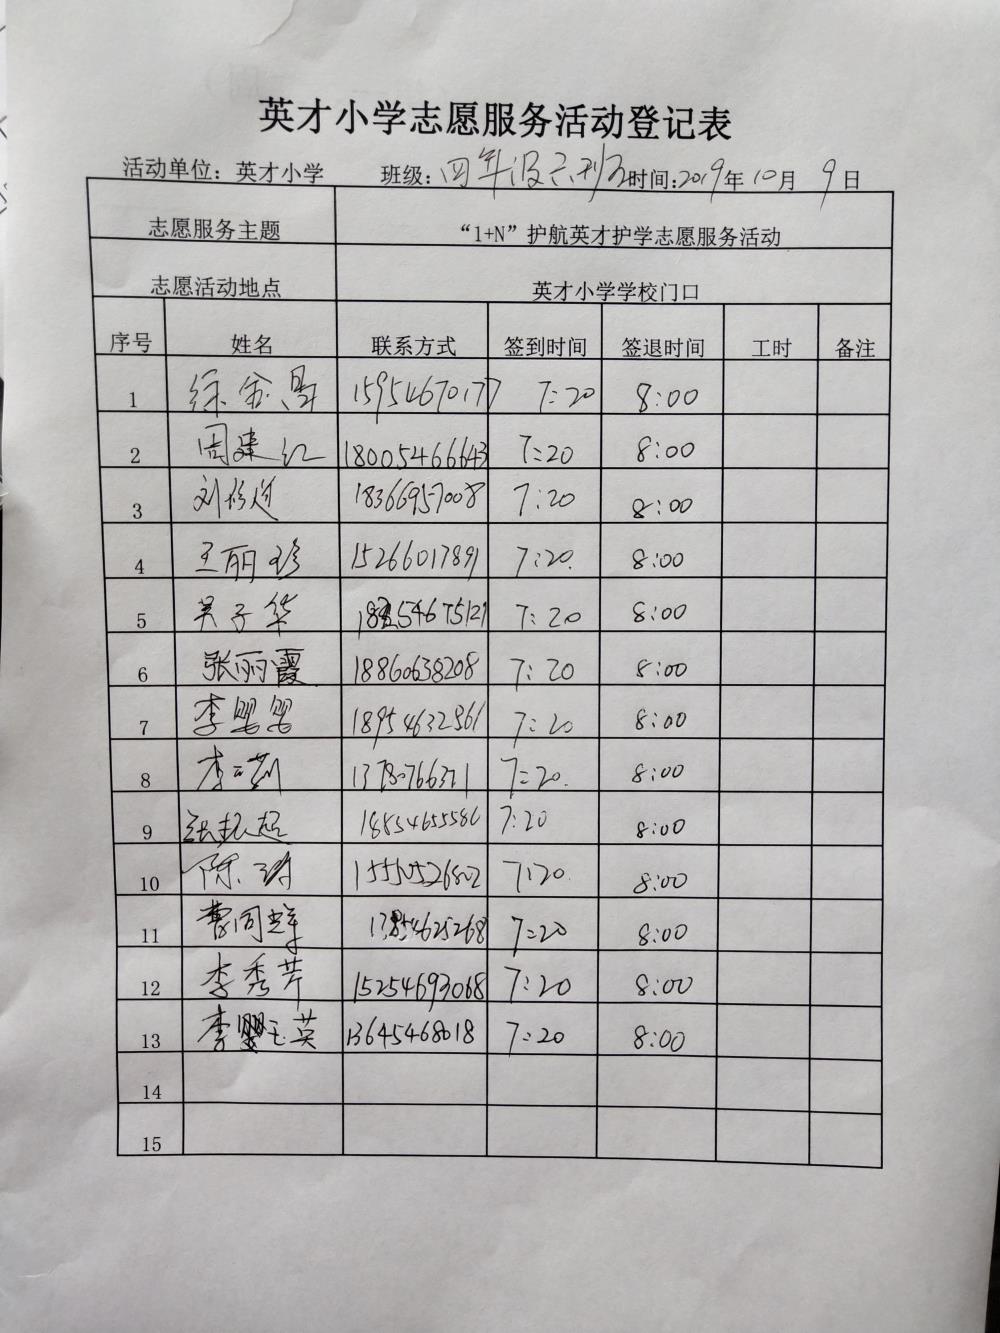 英才小学志愿服务活动登记表
活动单位：英才小学 班级：四年级 时间：2019年10月9日
志愿服务主题 “1+N”护航英才护学志愿服务活动
志愿活动地点 英才小学学校门口
序号 姓名 联系方式 签到时间 签退时间 工时 备注
1 15954670177 7:20 8:00
2 周建红 18005466643 7:20 8:00
3 18366957008 7:20 8:00
4 王丽珍 15266017891 7:20 8:00
5 吴子华 7:20 8:00
6 张丽霞 18860638208 7:20 8:00
7 李婴婴 18954632861 7:20 8:00
8 7:20 8:00
9 张振超 18854655586 7:20 8:00
10 陈 15550526802 7:20 8:00
11 曹同辉 13854625268 7:20 8:00
12 李秀芹 15254693068 7:20 8:00
13 李玉英 13645468018 7:20 8:00
14
15